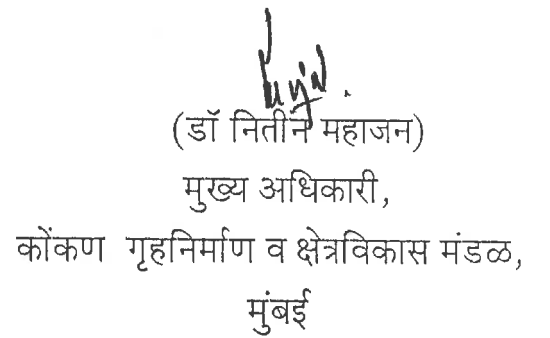 (डॉ नितीन महाजन)
मुख्य अधिकारी,
कोंकण गृहनिर्माण व क्षेत्रविकास मंडळ,
मुंबई